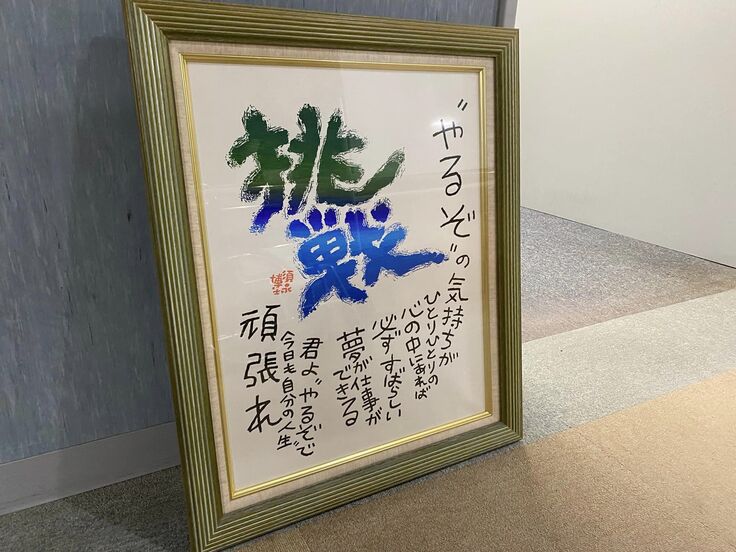 挑戦
“やるぞ”の気持ちが
ひとりひとりの
心の中にあれば
必ずすばらしい
夢が仕事が
できる
君よ“やるぞで
今日も自分の人生”
頑張れ
須永
博士